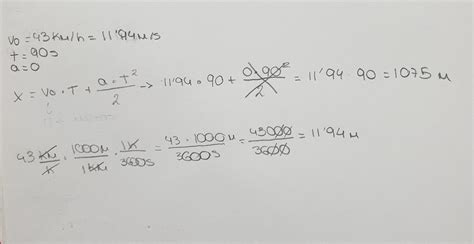 vo = 43 Km/h = 11'94 m/s
t = 90s
a = 0
x = vo · T + a · T² / 2 → 11'94 · 90 + 0 · 90² / 2 = 11'94 · 90 = 1075 M
43 KM/K · 1000M/1KM · 1K/3600S = 43 · 1000M/3600S = 43000/3600 = 11'94 M